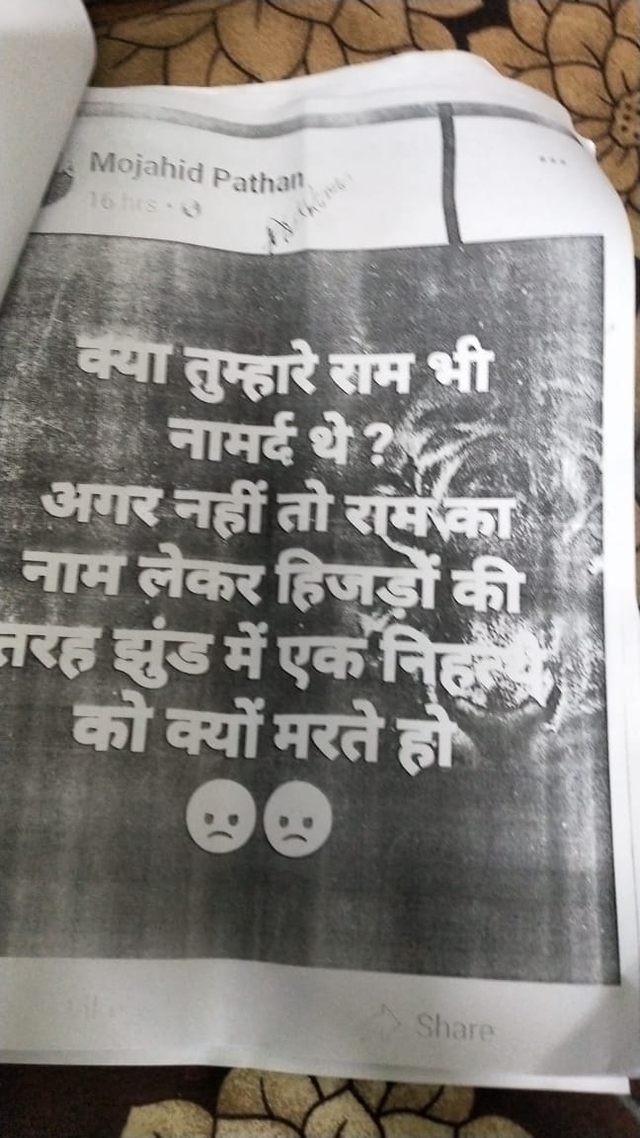 Mojahid Pathan
16 hrs
क्या तुम्हारे राम भी
नामर्द थे ?
अगर नहीं तो राम का
नाम लेकर हिजड़ों की
तरह झुंड में एक
को क्यों मरते हो
Share